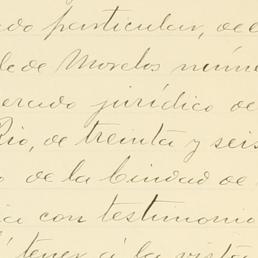 do particular, de
le de Morelos núme
erado jurídico de
Rio, de treinta y seis
o de la Ciudad de
ica con testimonio
tener á la vista